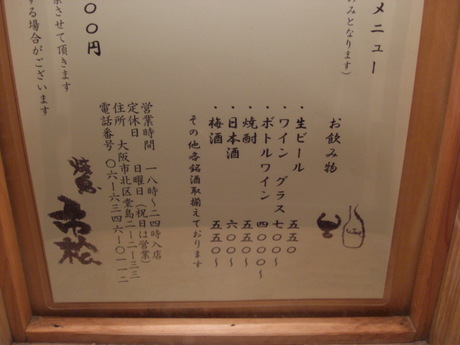 メニュー
みとなります)
お飲み物
・生ビール 五五〇
・ワイン グラス 七〇〇〜
・ボトルワイン 四〇〇〇〜
・焼酎 五五〇〜
・日本酒 六〇〇〜
・梅酒 五五〇〜
その他各銘酒取揃えております
営業時間 一八時〜二四時入店
定休日 日曜日(祝日は営業)
住所 大阪市北区堂島二ー二ー三三
電話番号 〇六ー六三四六ー〇一一二
焼鳥 市松
〇〇円
させて頂きます
する場合がございます